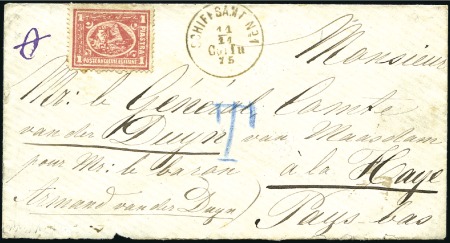 1 PIASTRE 1
POSTE KHEDEUIE EGIZIANE
SCHIFFSAMT No 1
11
11
Corfu
75
Monsieur
Mr: le Général Comte
van der Duyn van Maasdam
pour Mr: le baron à la Haye
Armand van der Duyn) Pays bas
T